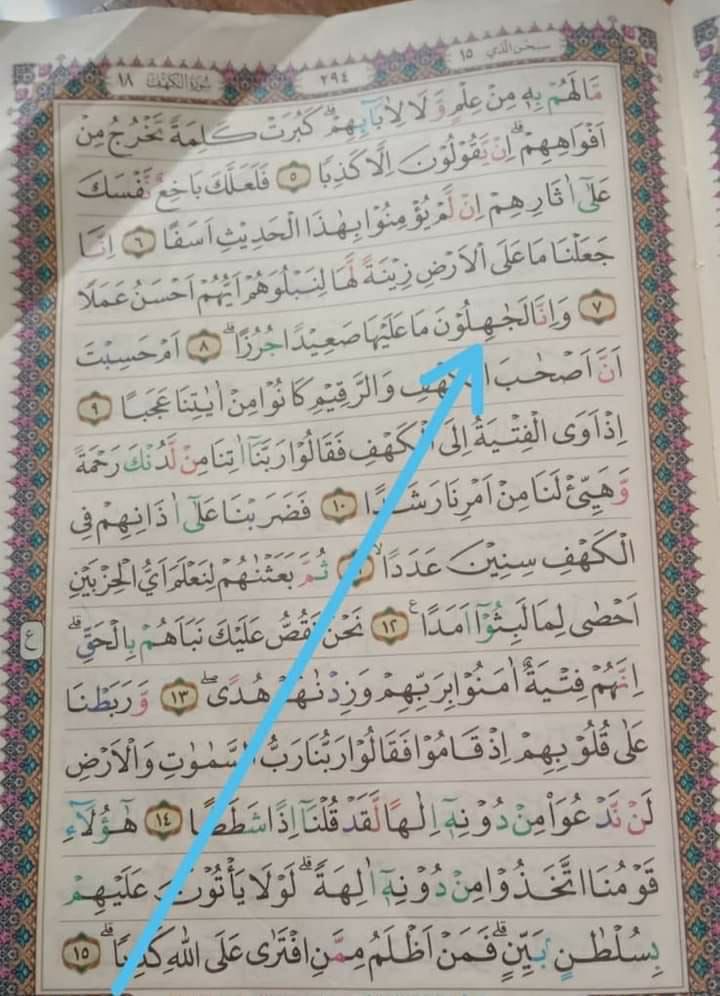 سبحن الذي ١٥
٢٩٤
سُوْرَةُ الْكَهْفِ ١٨
مَّا لَهُمْ بِهٖ مِنْ عِلْمٍ وَّلَا لِاٰبَآىِٕهِمْۗ كَبُرَتْ كَلِمَةً تَخْرُجُ مِنْ
اَفْوَاهِهِمْۗ اِنْ يَّقُوْلُوْنَ اِلَّا كَذِبًا ٥ فَلَعَلَّكَ بَاخِعٌ نَّفْسَكَ
عَلٰٓى اٰثَارِهِمْ اِنْ لَّمْ يُؤْمِنُوْا بِهٰذَا الْحَدِيْثِ اَسَفًا ٦ اِنَّا
جَعَلْنَا مَا عَلَى الْاَرْضِ زِيْنَةً لَّهَا لِنَبْلُوَهُمْ اَيُّهُمْ اَحْسَنُ عَمَلًا
٧ وَاِنَّا لَجٰهِلُوْنَ مَا عَلَيْهَا صَعِيْدًا جُرُزًاۗ ٨ اَمْ حَسِبْتَ
اَنَّ اَصْحٰبَ وَالرَّقِيْمِ كَانُوْا مِنْ اٰيٰتِنَا عَجَبًا ٩
اِذْ اَوَى الْفِتْيَةُ اِلَى الْكَهْفِ فَقَالُوْا رَبَّنَآ اٰتِنَا مِنْ لَّدُنْكَ رَحْمَةً
وَّهَيِّئْ لَنَا مِنْ اَمْرِنَا رَشَدًا ١٠ فَضَرَبْنَا عَلٰٓى اٰذَانِهِمْ فِى
الْكَهْفِ سِنِيْنَ عَدَدًاۙ ثُمَّ بَعَثْنٰهُمْ لِنَعْلَمَ اَيُّ الْحِزْبَيْنِ
اَحْصٰى لِمَا لَبِثُوْٓا اَمَدًاࣖ ١٢ نَحْنُ نَقُصُّ عَلَيْكَ نَبَاَهُمْ بِالْحَقِّۗ
ع
اِنَّهُمْ فِتْيَةٌ اٰمَنُوْا بِرَبِّهِمْ وَزِدْنٰهُمْ هُدًىۖ ١٣ وَّرَبَطْنَا
عَلٰى قُلُوْبِهِمْ اِذْ قَامُوْا فَقَالُوْا رَبُّنَا رَبُّ السَّمٰوٰتِ وَالْاَرْضِ
لَنْ نَّدْعُوَا۟ مِنْ دُوْنِهٖٓ اِلٰهًا لَّقَدْ قُلْنَآ اِذًا شَطَطًا ١٤ هٰٓؤُلَاۤءِ
قَوْمُنَا اتَّخَذُوْا مِنْ دُوْنِهٖٓ اٰلِهَةًۗ لَوْلَا يَأْتُوْنَ عَلَيْهِمْ
بِسُلْطٰنٍ بَيِّنٍۗ فَمَنْ اَظْلَمُ مِمَّنِ افْتَرٰى عَلَى اللّٰهِ كَذِبًاۗ ١٥